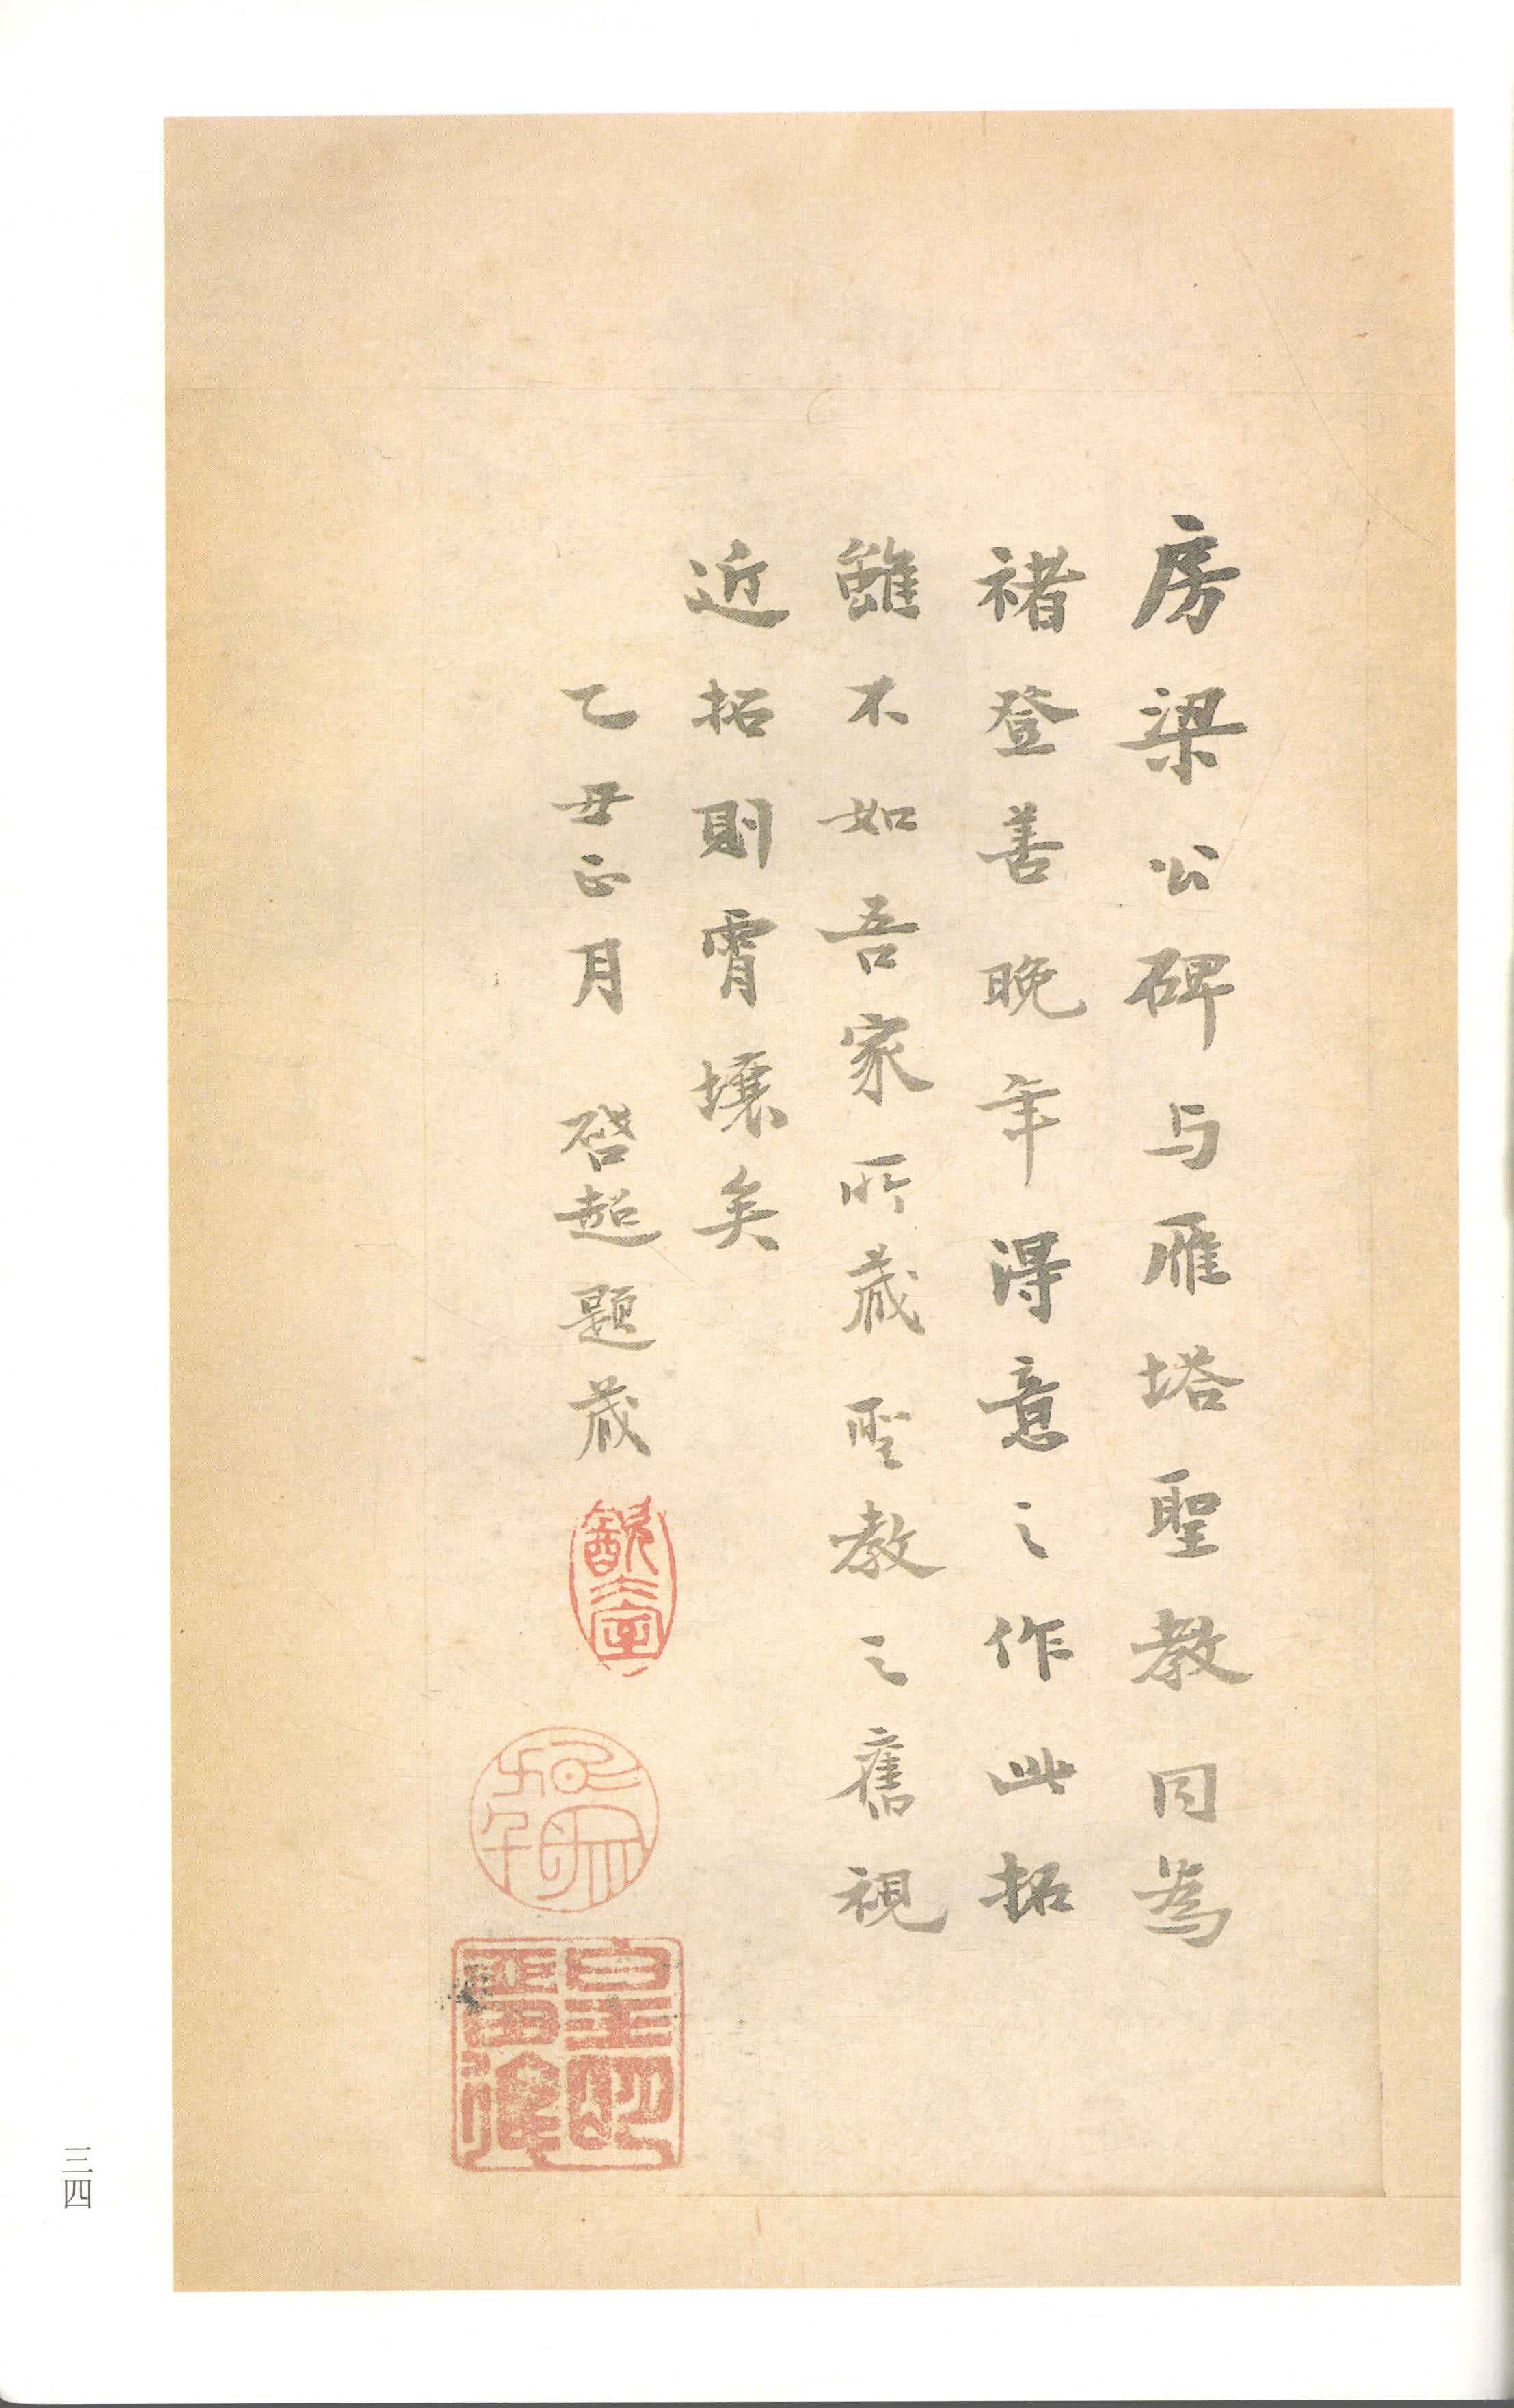 房梁公碑与雁塔聖教同為
褚登善晚年得意之作此拓
雖不如吾家所藏聖教之舊視
近拓則霄壤矣
乙丑正月 啓超題藏
飲冰室
三四